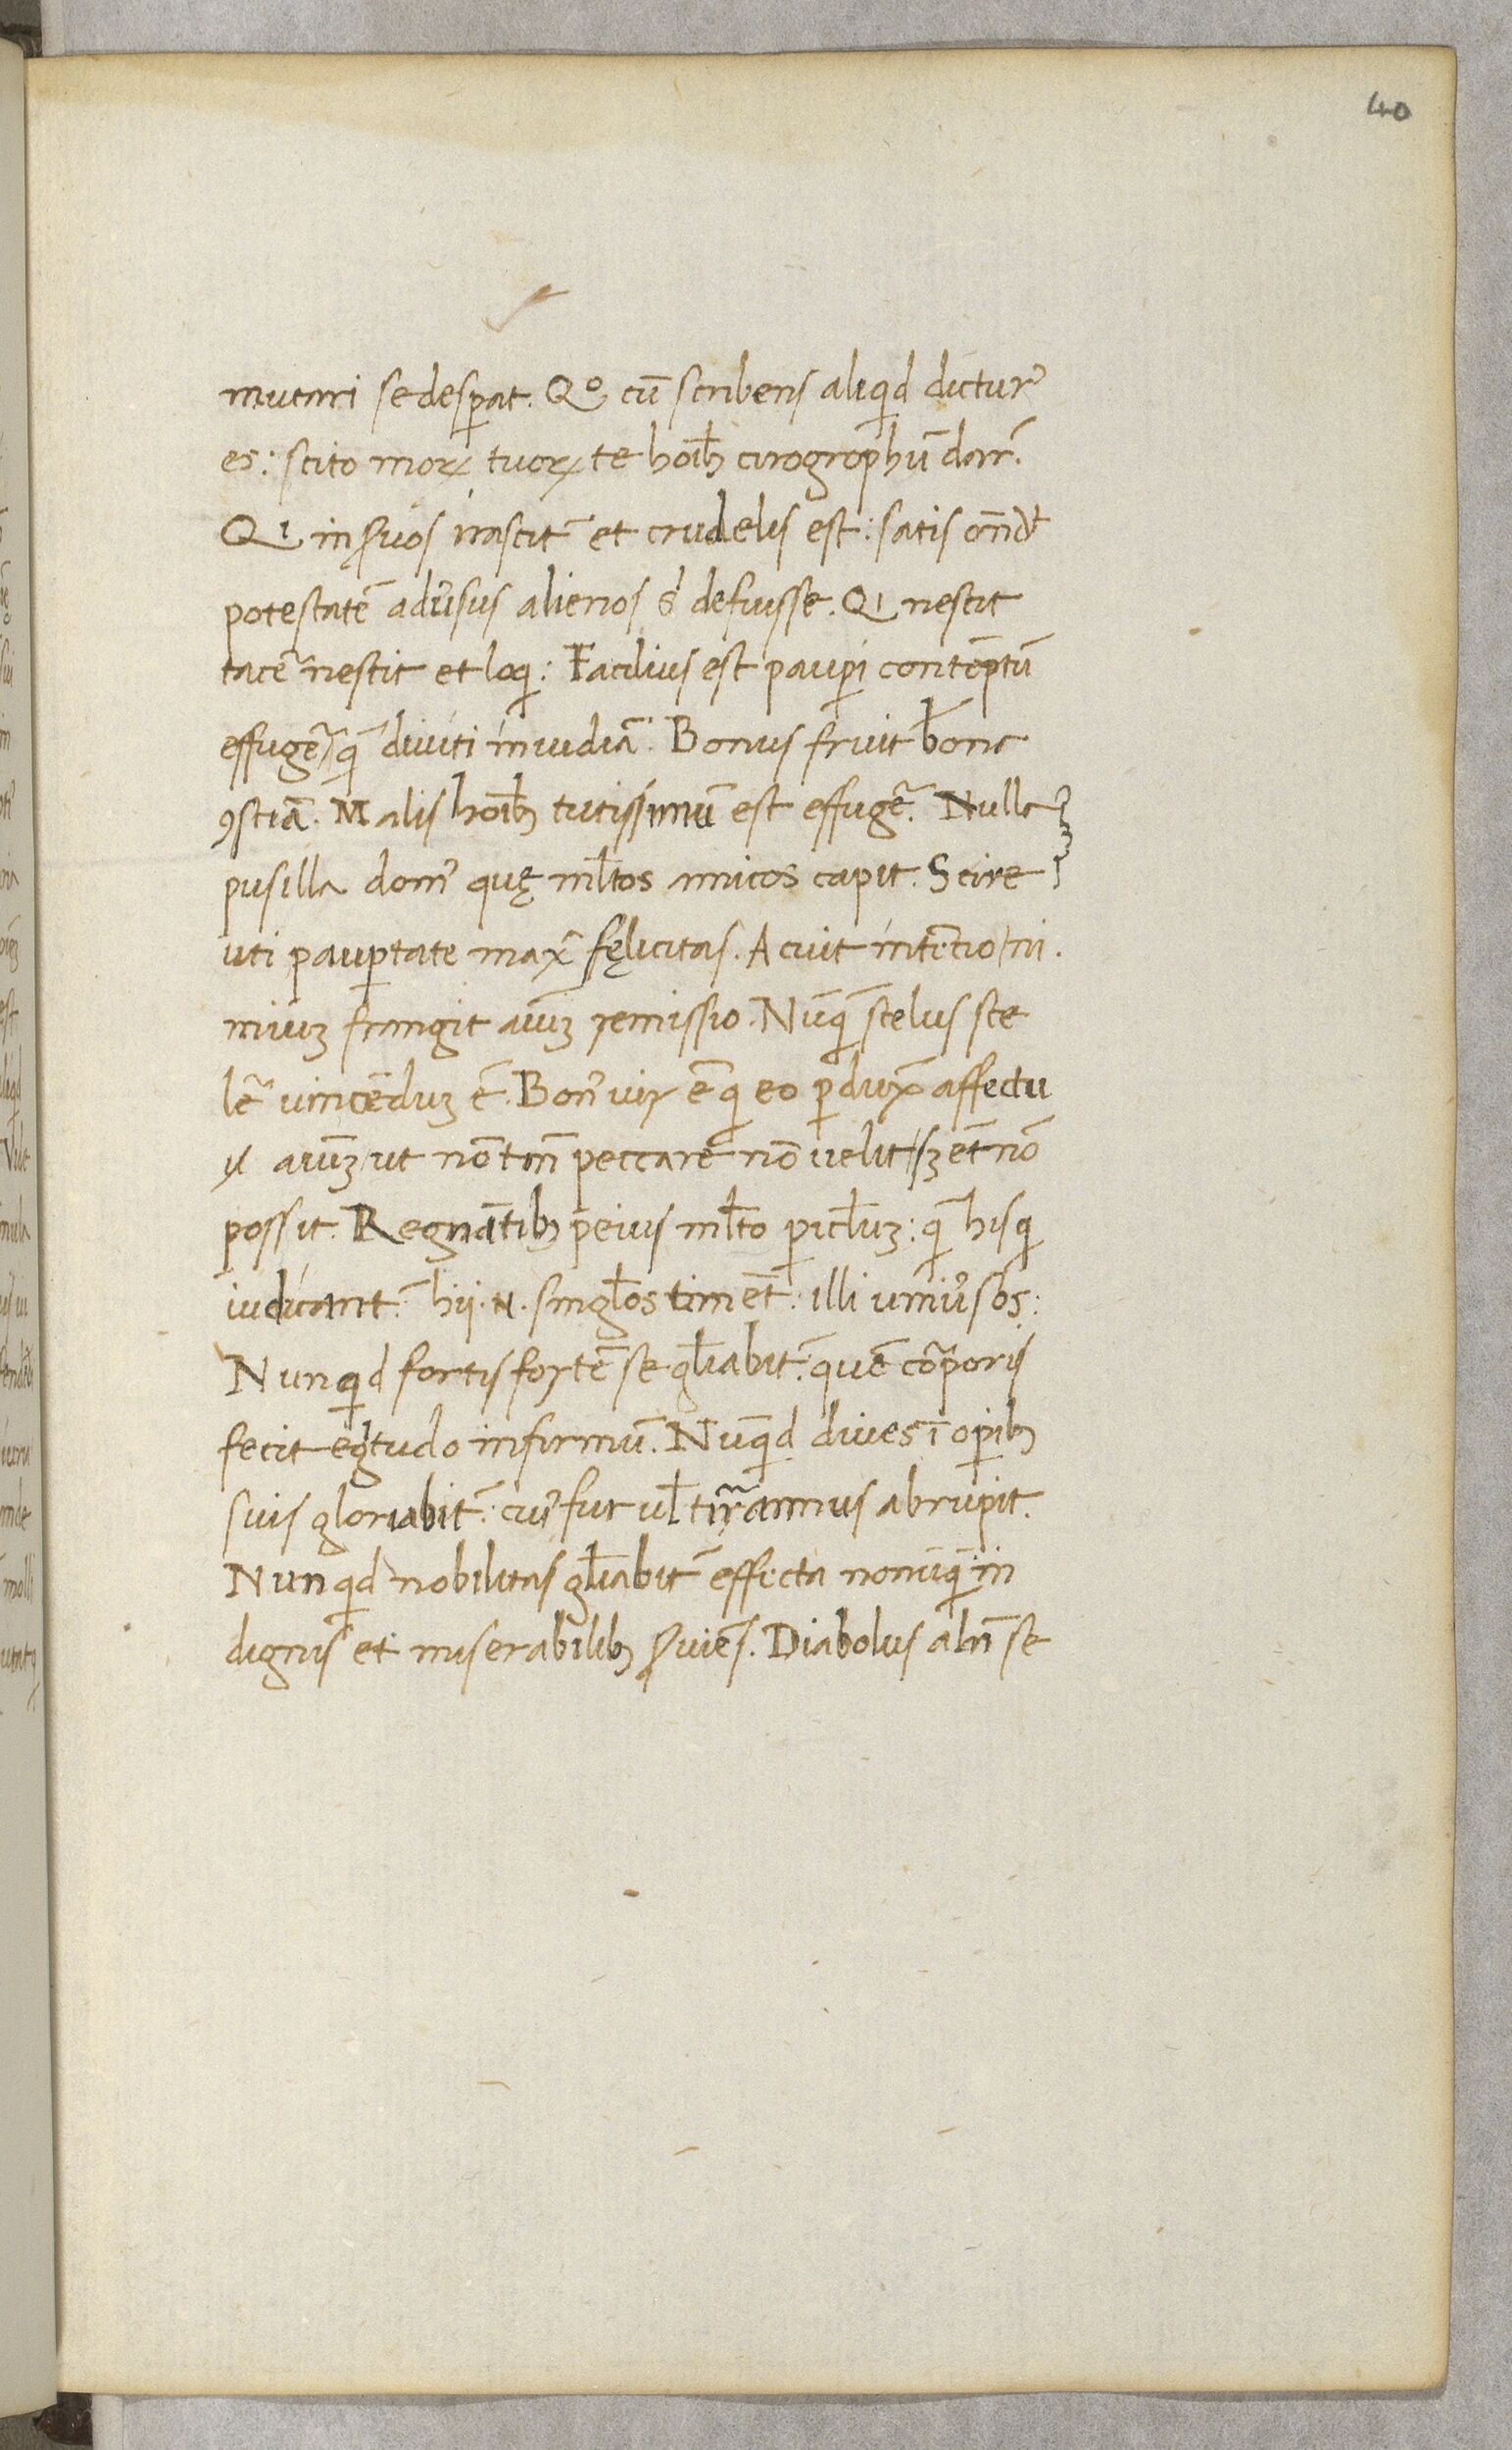 40
mutari se desꝑat. Qͦ cū scribens aliqͥd dictur᾽
es: scito moꝝ tuoꝝ te hoīb; cirographū dar̄.
Qi in suos irascit᷑ et crudelis est: satis oñdᵗ
potestatē adu̓sus alienos sⁱ defuisse. Qi nescit
tacē᷑ nescit et loqͥ: Facilius est pauꝑi contēptū
effugē᷑ / qͣ̄ diuiti inuidiā. Bonus fruit᷑ bona
ꝯsciā. Malis hoīb; tutissimū est effugē᷑. Nulla
pusilla dom᾽ quę ml̄tos amicos capit. Scire
uti pauꝑtate max̄ fęlicitas. Acuit intētio / ni
miuꝫ frangit aīuꝫ remissio. Nūqͣ̄ scelus sce
lē᷑ uincēduꝫ ē. Bon᾽ uir ē qͥ eo ꝑdux̄ affectū
ɫ aīuꝫ / ut nō tm̄ peccare nō uelit / sꝫ et̄ nō
possit. Regnātib; peius ml̄to ꝑicl̄uꝫ: qͣ̄ his qͥ
iudicant᷑: hij .n. singl̄os timēt: illi uniu̓sos:
Nunqͥd fortis fortē se gl̄iabit᷑: quē corꝑoris
fecit egͥtudo infirmū. Nūqͥd diues ī opib;
suis gloriabit᷑: cui᾽ fur ul̄ tirannus abrupit.
Nunqͥd nobilitas gl̄iabit᷑ effecta nonūqͣ̄ in
dignis et miserabilib; ẜuiēs. Diabolus aln̄ se